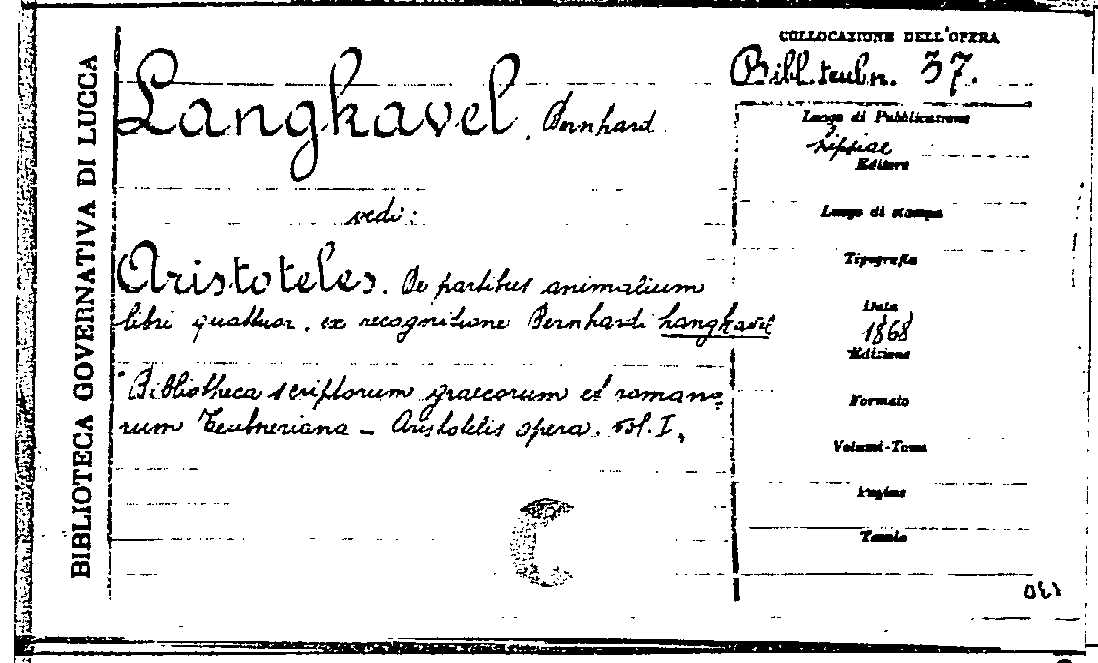 BIBLIOTECA GOVERNATIVA DI LUCCA
Langkavel, Bernhard
vedi:
Aristoteles. De partibus animalium
libri quattuor. ex recognitione Bernhardi Langkavel
Bibliotheca scriptorum graecorum et romano
rum Teubneriana - Aristotelis opera. Vol. I.
C
COLLOCAZIONE DELL'OPERA
Bibl. teubn. 37.
Luogo di Pubblicazione
Lipsiae
Editore
Luogo di stampa
Tipografia
Data
1868
Edizione
Formato
Volumi-Tomo
Pagine
Tavole